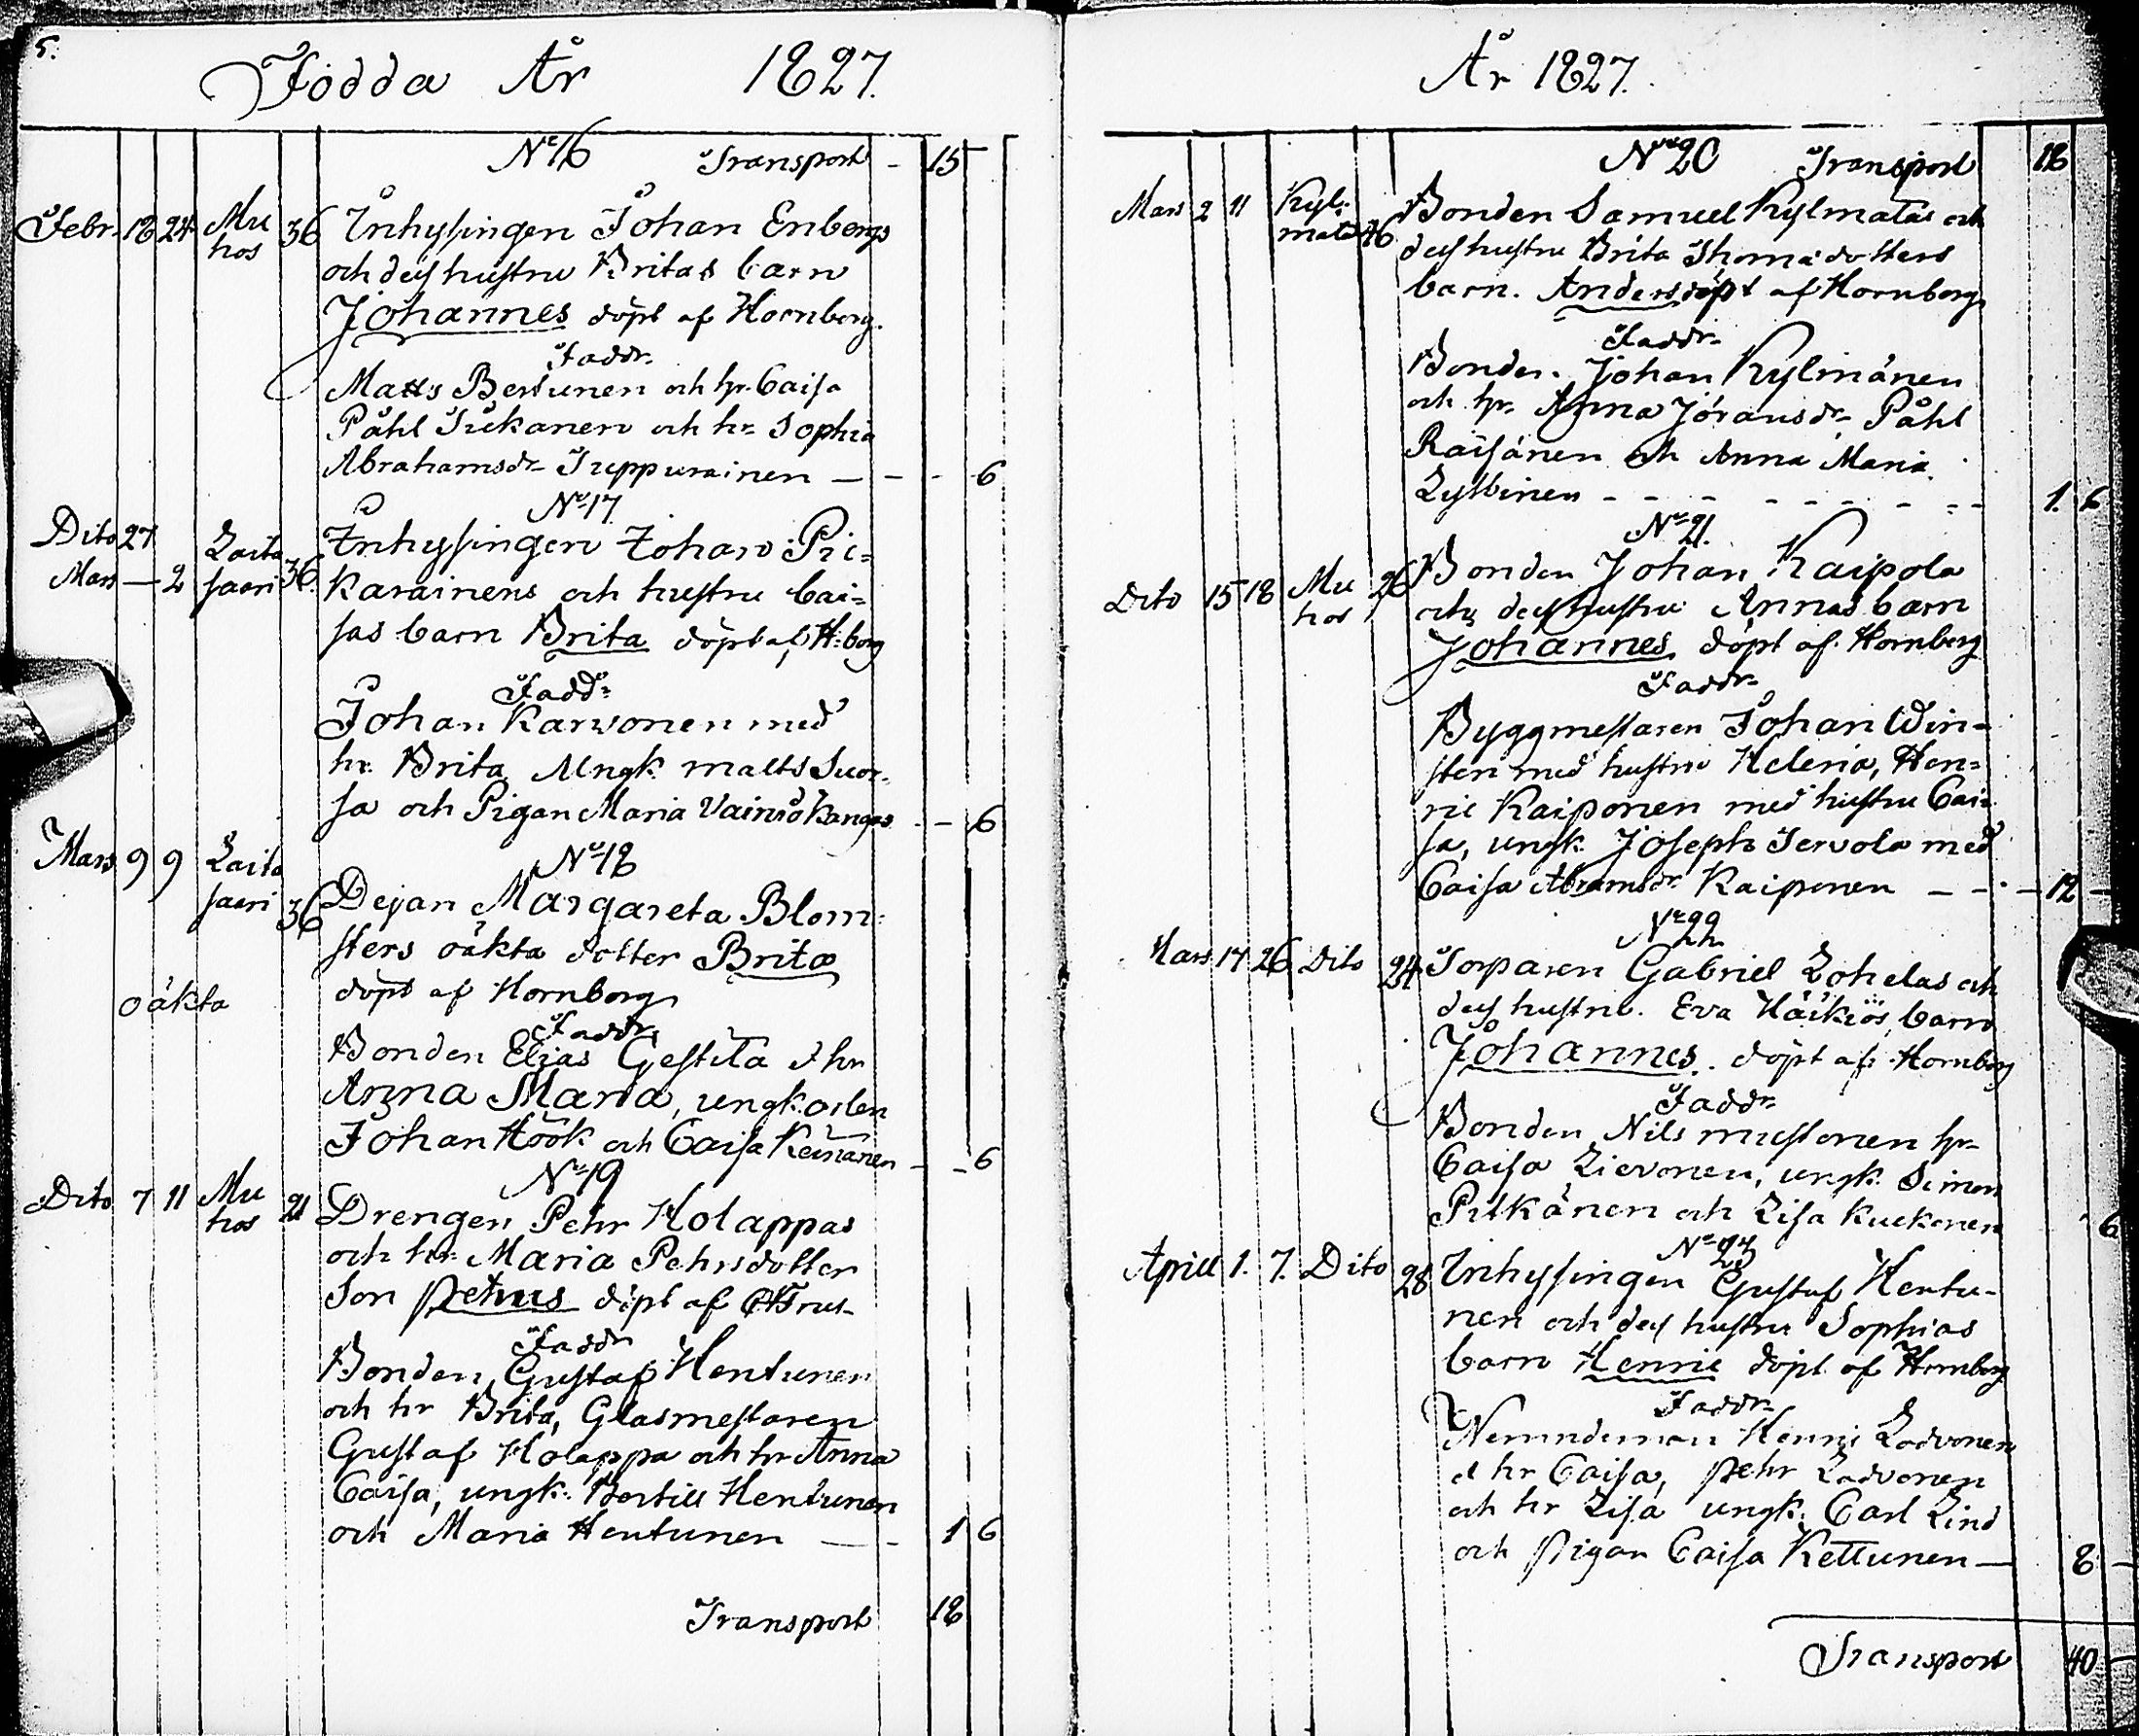 5.
Födda År 1827.
No 16 Transport - 15
Febr. 18 24 Mu 36 Inhysingen Johan Enbergs
hos och dess hustru Britas barn
Johannes döpt af Hornborg.
Faddr.
Matts Bertunen och hr. Caisa
Påhl Tukanen och hr Sophia
Abrahamsdr Juppurainen — - - 6
No 17.
Dito 27 Laita Inhysingen Johan Pic=
Mars — 2 saari 36. karainens och hustru Cai=
sas barn Brita döpt af H:borg
Fadd:
Johan Karvonen med
hr. Brita Ungk. Matts Suor-
sa och Pigan Maria Vainiökangas - — 6
Mars 9 9 Laita No 18
saari 36 Dejan Margareta Blom=
sters oäkta dotter Brita
oäkta döpt af Hornborg
Faddr
Bonden Elias Gestila & hr
Anna Maria, ungkarlen
Johan Höök och Caisa Keinänen - - 6
No 19
Dito 7 11 Mu 21 Drengen Pehr Holappas
hos och hr Maria Pehrsdotter
Son Petrus döpt af
Faddr
Bonden Gustaf Hentunen
och hr Brita, Glasmestaren
Gustaf Holappa och hr Anna
Caisa, ungk. Bertill Hentunen
och Maria Hentunen — - 1 6
Transport 18
År 1827.
No 20 Transport 18
Mars 2 11 Kyl- Bonden Samuel Kylmatas och
mata 46 dess hustru Brita Thomædotters
barn. Anders döpt af Hornborg
Faddr.
Bonden Johan Kylmänen
och hr. Anna Jöransdr Påhl
Räisänen och Anna Maria
Lyttinen - - - - - - - - 1. 6
No 21.
Dito 15 18 Mu 26 Bonden Johan Kaipola
hos och dess hustru Annas barn
Johannes döpt af Hornborg
Faddr
Byggmestaren Johan Win-
sten med hustru Helena, Hen=
ric Kaiponen med hustru Cai=
sa, ungk. Joseph Tervola med
Caisa Abramsdr Kaiponen — - - — 12 —
No 22
Mars 17 26 Dito 24 Torparen Gabriel Lohelas och
dess hustru. Eva Häikiös barn
Johannes. döpt af Hornborg
Faddr
Bonden Nils Mustonen hr
Caisa Lievonen, ungk. Simon
Pitkänen och Lisa Kuckonen 6
No 23
Aprill 1. 7. Dito 28 Inhysingen Gustaf Hentu-
nen och dess hustru Sophias
barn Henric döpt af Hornborg
Faddr
Nemndeman Henric Ladvonen
& hr Caisa, Pehr Ladvonen
och hr Lisa ungk. Carl Lind
och Pigan Caisa Kettunen — 8 -
Transport 40